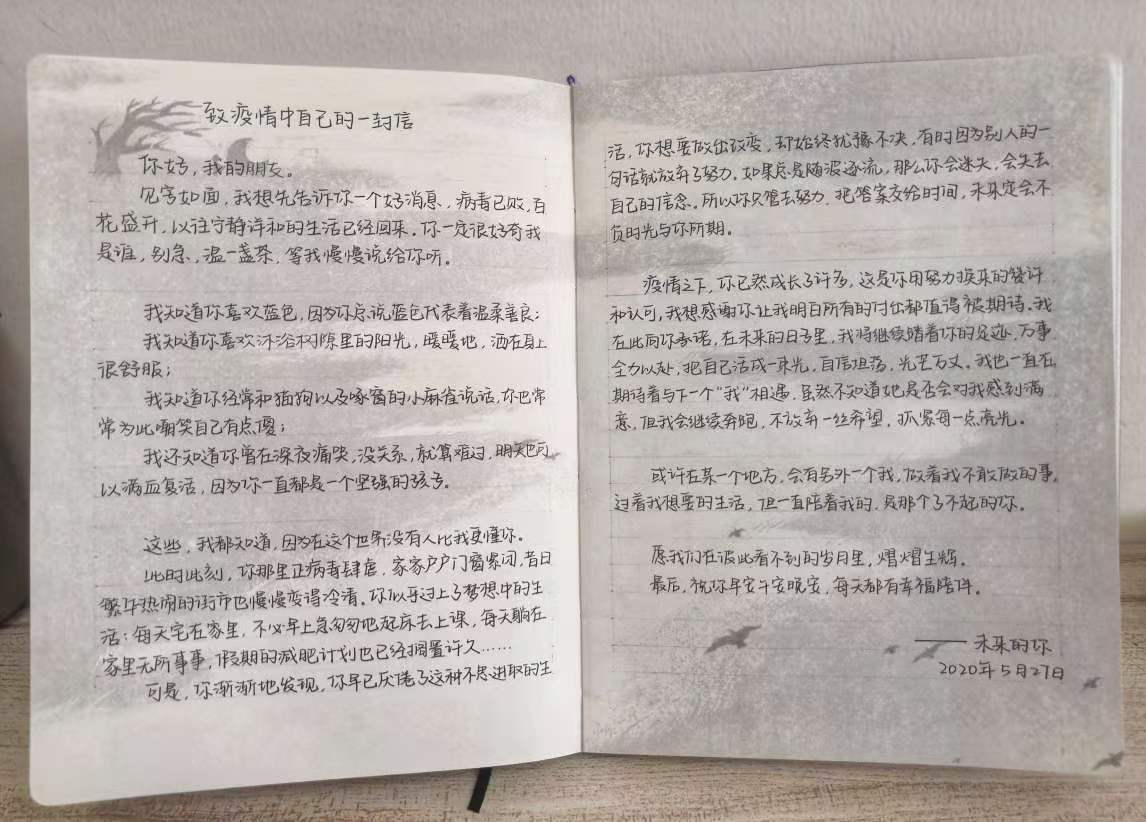 致疫情中自己的一封信
你好，我的朋友。
见字如面，我想先告诉你一个好消息，病毒已败，百
花盛开，以往宁静详和的生活已经回来。你一定很好奇我
是谁，别急，温一盏茶，等我慢慢说给你听。
我知道你喜欢蓝色，因为你总说蓝色代表着温柔善良；
我知道你喜欢沐浴树隙里的阳光，暖暖地，洒在身上
很舒服；
我知道你经常和猫狗以及啄窗的小麻雀说话，你也常
常为此嘲笑自己有点傻；
我还知道你曾在深夜痛哭，没关系，就算难过，明天也可
以满血复活，因为你一直都是一个坚强的孩子。
这些，我都知道，因为在这个世界没有人比我更懂你。
此时此刻，你那里正病毒肆虐，家家户户门窗紧闭，昔日
繁华热闹的街市也慢慢变得冷清。你似乎过上了梦想中的生
活：每天宅在家里，不必早上急匆匆地起床去上课，每天躺在
家里无所事事，假期的减肥计划也已经搁置许久……
可是，你渐渐地发现，你早已厌倦了这种不思进取的生
活，你想要做出改变，却始终犹豫不决，有时因为别人的一
句话就放弃了努力。如果总是随波逐流，那么你会迷失，会失去
自己的信念。所以你只管去努力，把答案交给时间，未来定会不
负时光与你所期。
疫情之下，你已然成长了许多，这是你用努力换来的赞许
和认可，我想感谢你让我明白所有的付出都值得被期待。我
在此向你承诺，在未来的日子里，我将继续踏着你的足迹，万事
全力以赴，把自己活成一束光，自信坦荡，光芒万丈。我也一直在
期待着与下一个“我”相遇，虽然不知道她是否会对我感到满
意，但我会继续奔跑，不放弃一丝希望，抓紧每一点亮光。
或许在某一个地方，会有另外一个我，做着我不敢做的事，
过着我想要的生活，但一直陪着我的，是那个了不起的你。
愿我们在彼此看不到的岁月里，熠熠生辉。
最后，祝你早安午安晚安，每天都有幸福陪伴。
——未来的你
2020年5月27日